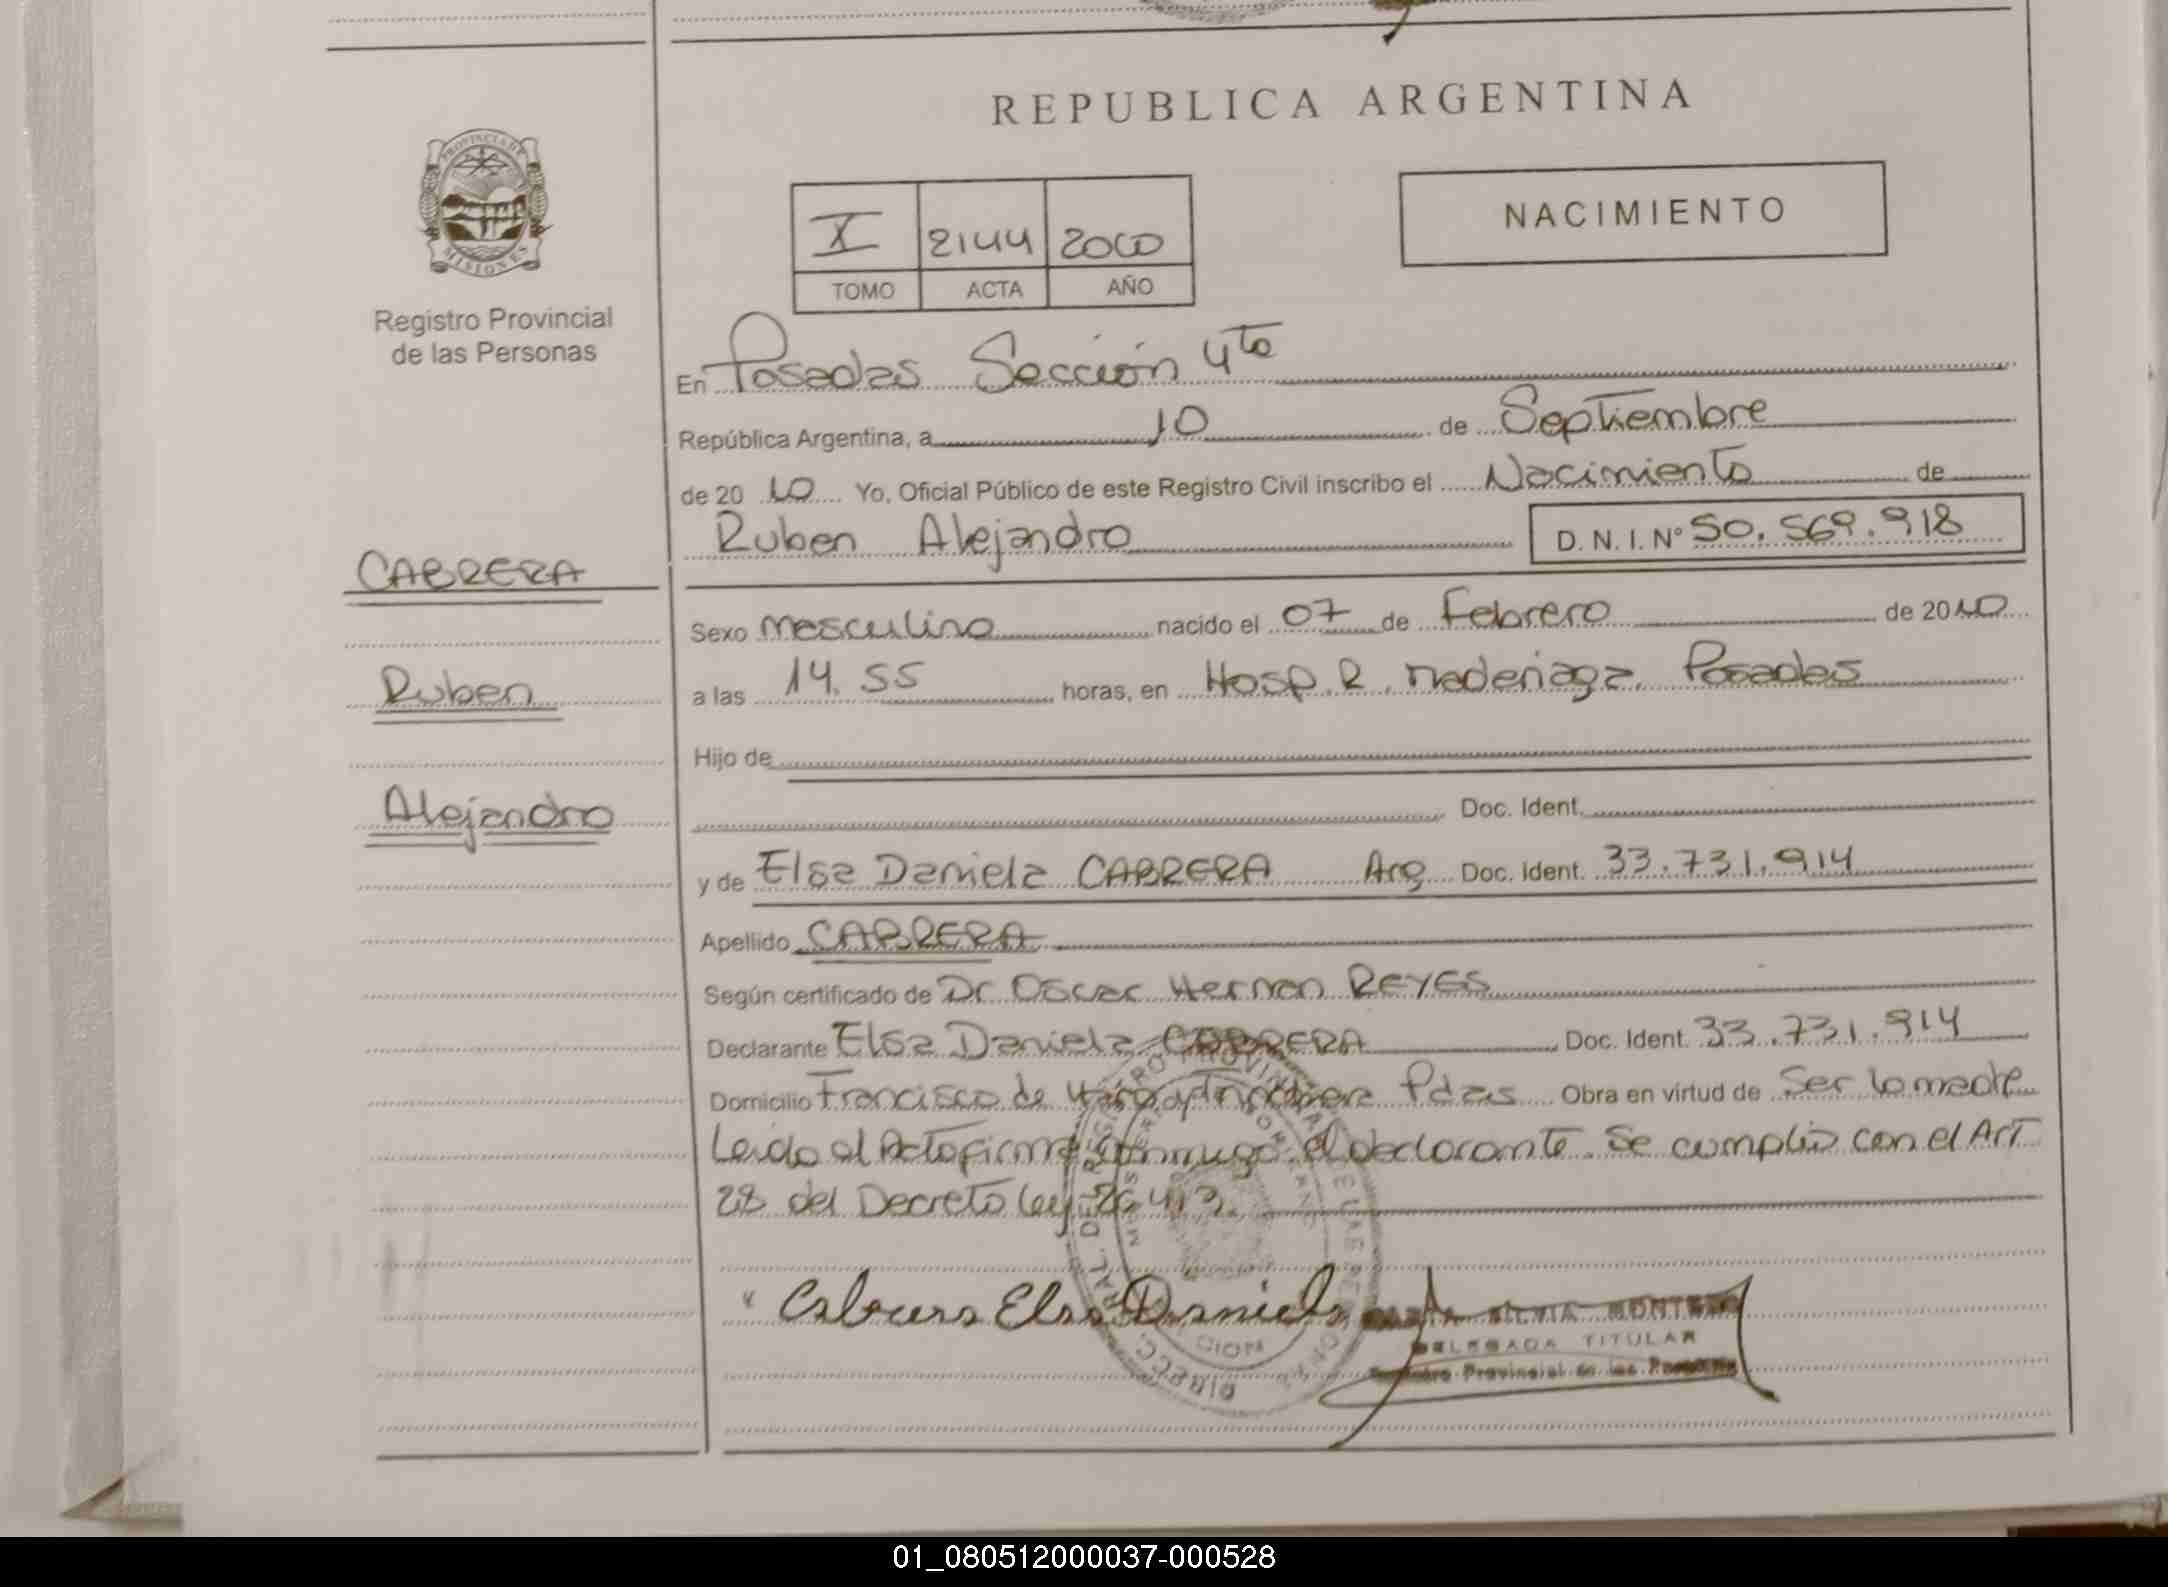 REPUBLICA ARGENTINA
PROVINCIA DE
MISIONES
Registro Provincial
de las Personas
NACIMIENTO
X 2144 2000
TOMO ACTA AÑO
En Posadas Sección 4ta
República Argentina, a 10 de Septiembre
de 20 10 Yo, Oficial Público de este Registro Civil inscribo el Nacimiento de
Ruben Alejandro D. N. I. Nº 50.569.918
CABRERA
Ruben
Alejandro
Sexo masculino nacido el 07 de Febrero de 2010
a las 14.55 horas, en Hosp. R. Madariaga. Posadas
Hijo de
Doc. Ident.
y de Elsa Daniela CABRERA Arg Doc. Ident. 33.731.914
Apellido CABRERA
Según certificado de Dr Oscar Hernan REYES
Declarante Elsa Daniela CABRERA Doc. Ident. 33.731.914
Domicilio Francisco de Pdas Obra en virtud de Ser la madre
Leido el Acta firma conmigo el declarante. Se cumplio con el Art
28 del Decreto Ley 26413.
Cabrera Elsa Daniela
SILVIA
DELEGADA TITULAR
Registro Provincial de las Personas
01_080512000037-000528